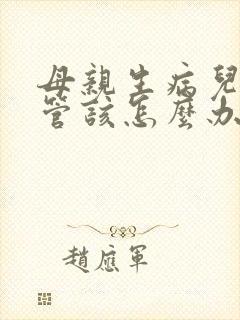 母親生病兒
管該怎麼办
趙應軍